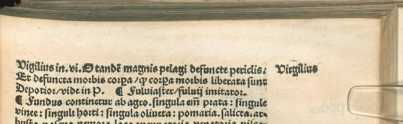 Vigilius in. vi. O tandē magnis pelagi defuncte periclis:
Virgilius
Et defuncta morbis corpa/ ꝙ corpa morbis liberata sunt
Depotior/ vide in P. ¶ Fuluiaster/ fuluij imitator.
¶ Fundus continetur ab agro. singula em̄ prata: singule
vinee: singuli horti: singula oliueta: pomaria. salicta. at⸗